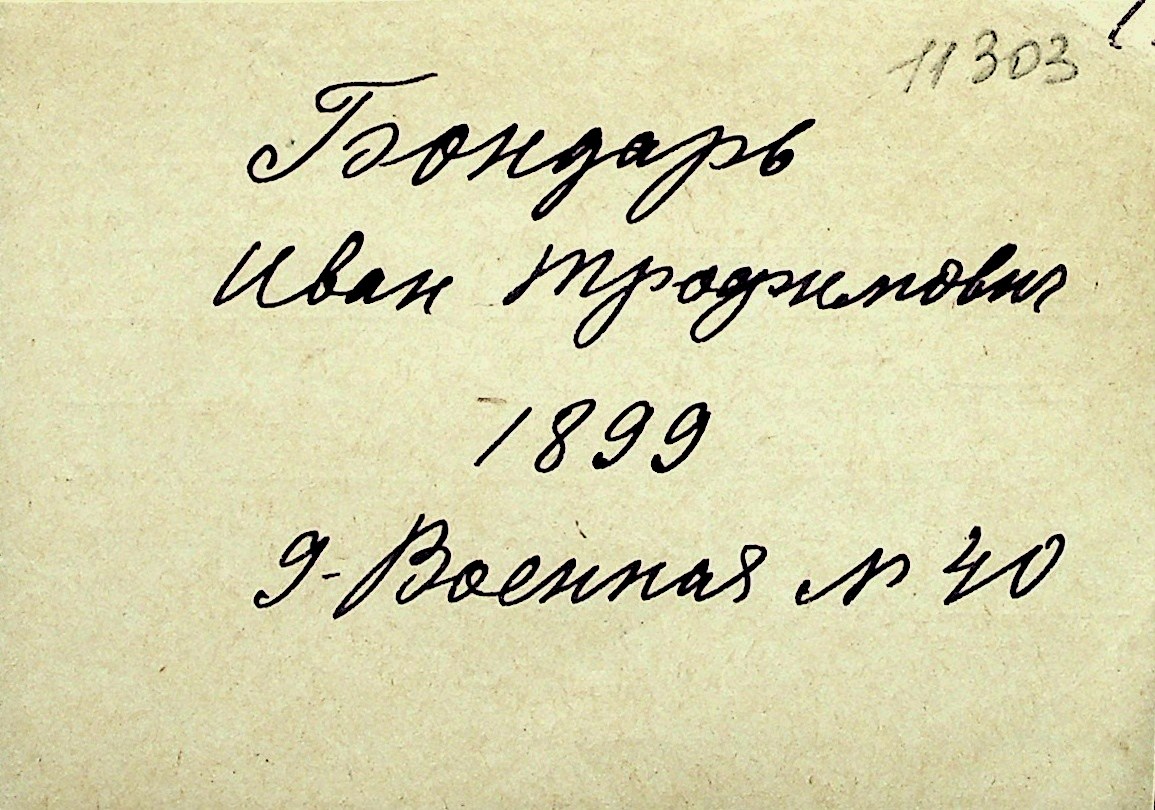 11303
Бондарь
Иван Трофимович
1899
9-Военная № 40